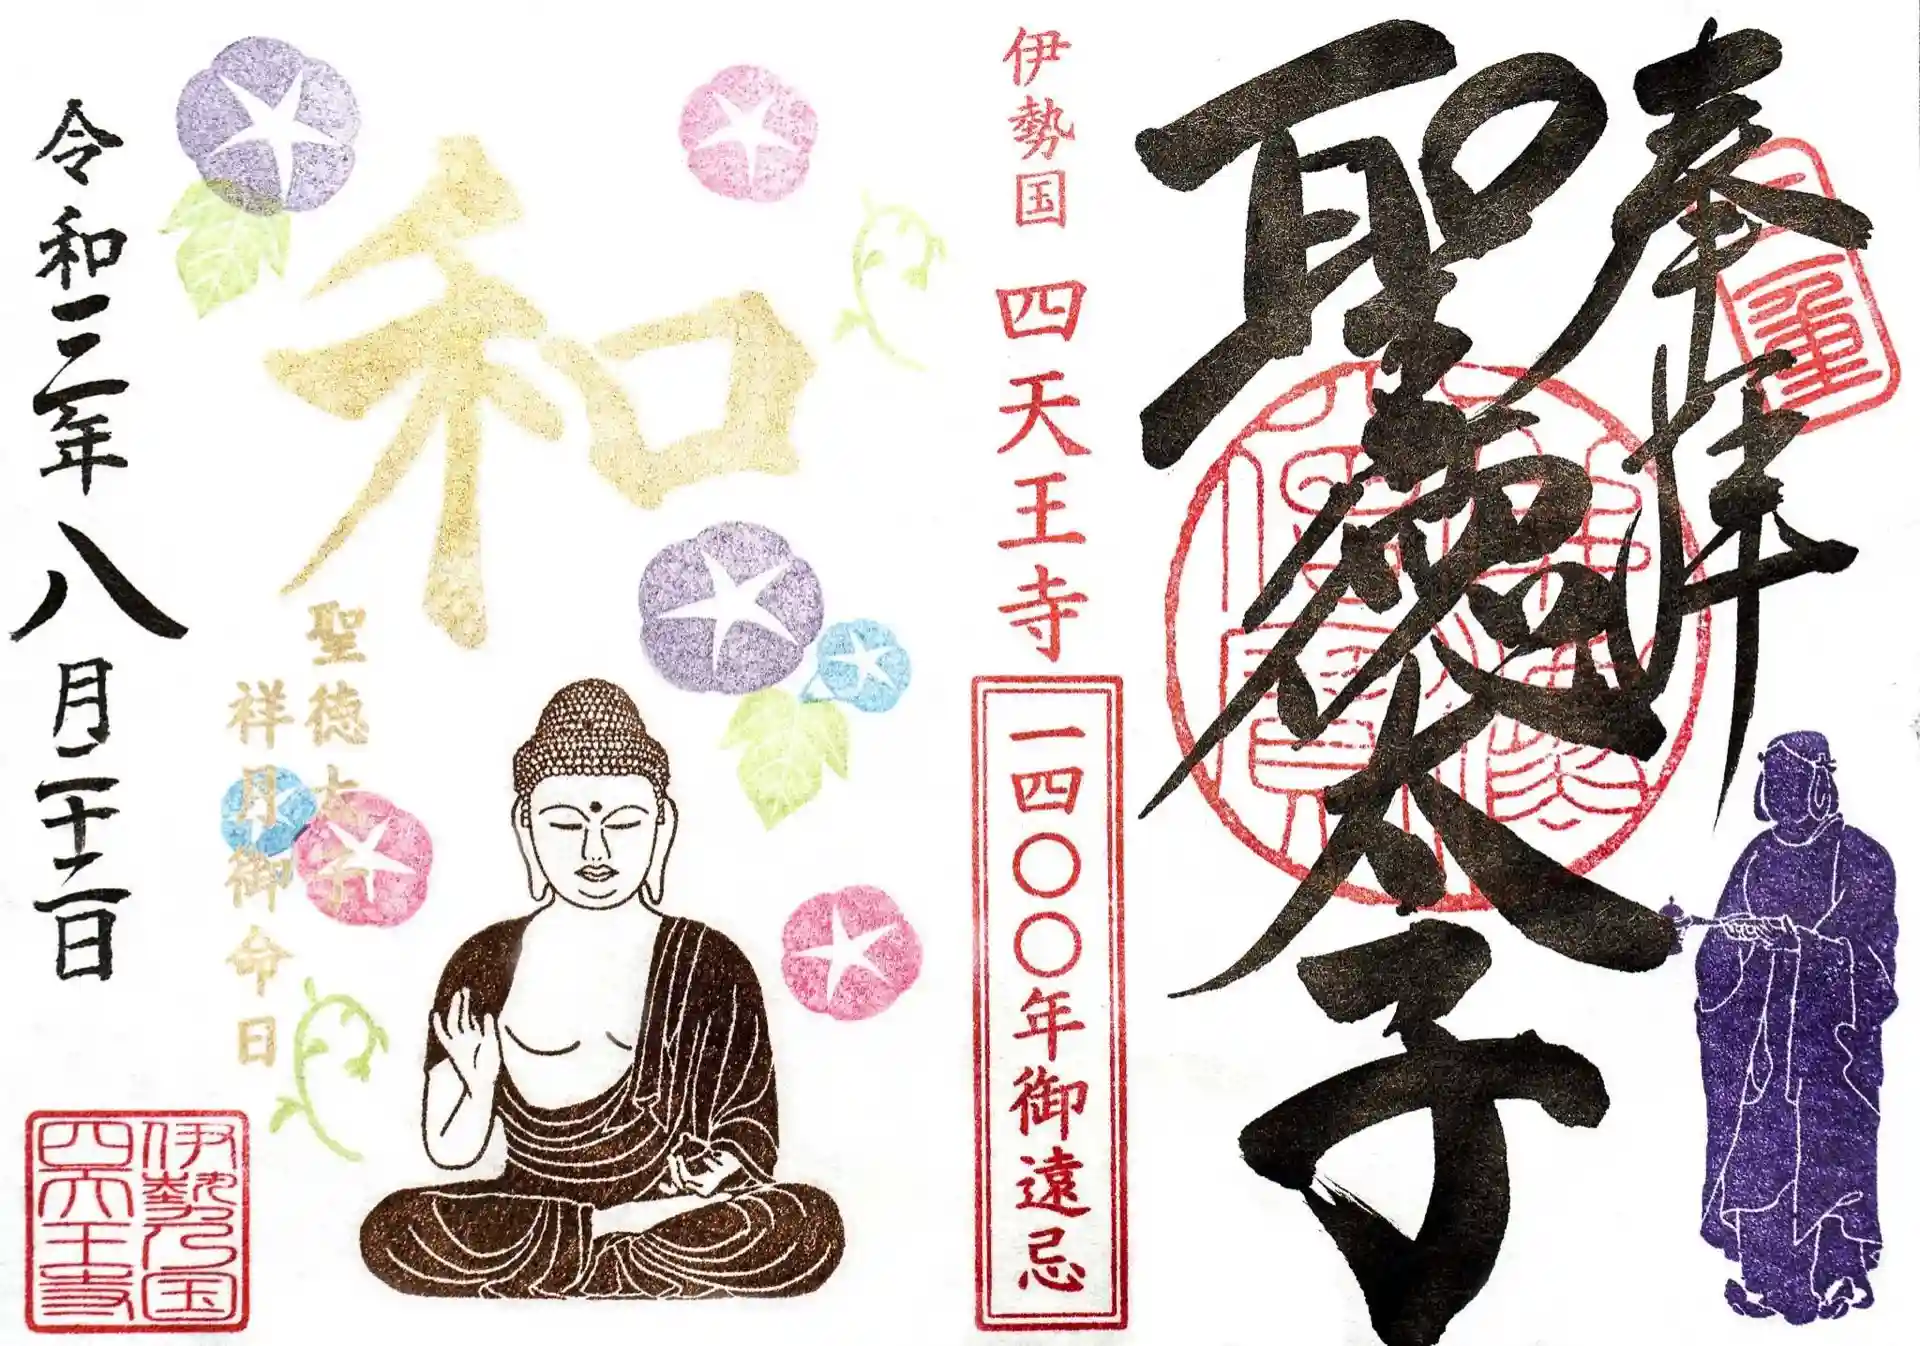 奉拝
聖徳太子
伊勢国 四天王寺
一四〇〇年御遠忌
和
聖徳太子
祥月御命日
令和三年八月二十二日
伊勢乃国
四天王寺